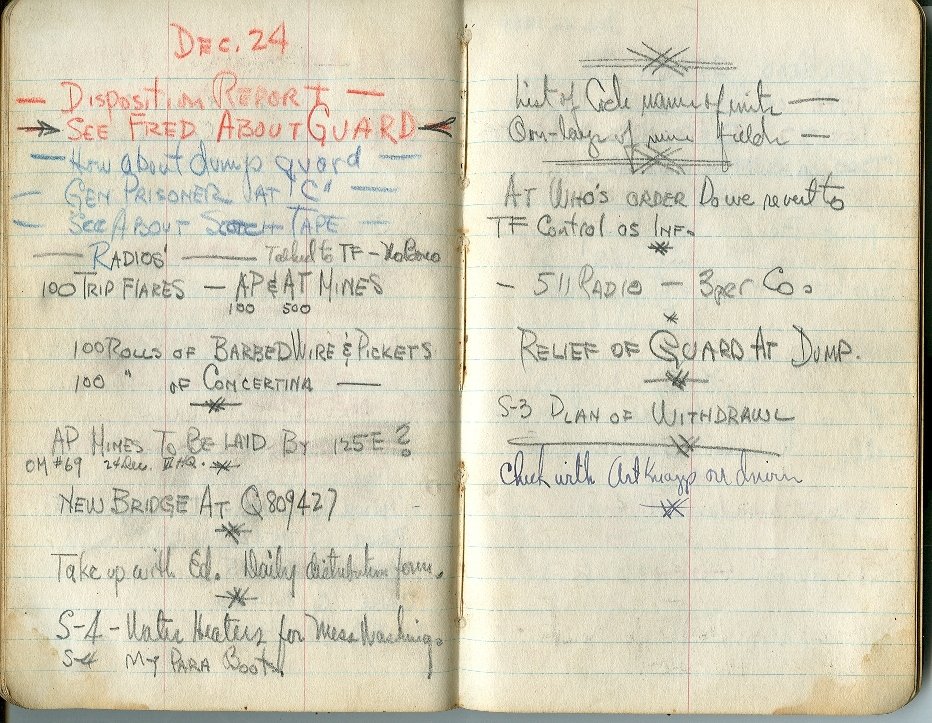 DEC. 24
— DISPOSITION REPORT —
SEE FRED ABOUT GUARD
— How about dump guard —
— GEN PRISONER AT "C" —
— SEE ABOUT SCOTCH TAPE —
— RADIOS — Talked to TF -
100 TRIP FLARES — AP & AT MINES
100 500
100 ROLLS OF BARBED WIRE & PICKETS
100 " OF CONCERTINA —
AP MINES TO BE LAID BY 125E?
OM #69 24 Dec. VI HQ.
NEW BRIDGE AT Q809427
Take up with Ed. Daily distribution form.
S-4 - Water Heaters for Mess Washing.
S-4 MY PARA BOOTS
List of Code names of units —
Over-lays of mine fields —
AT WHO'S ORDER Do we revert to
TF Control as INF.
- 511 RADIO - 3 per Co.
RELIEF OF GUARD AT DUMP.
S-3 PLAN OF WITHDRAWL
Check with Art Knapp on